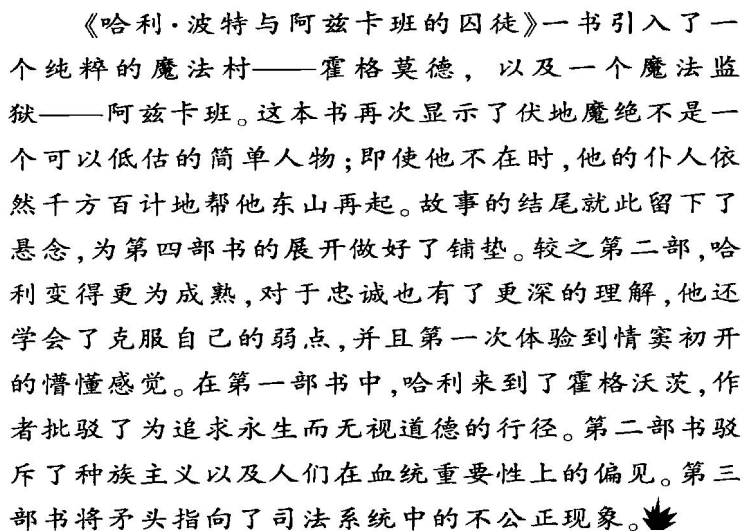 《哈利·波特与阿兹卡班的囚徒》一书引入了一
个纯粹的魔法村——霍格莫德，以及一个魔法监
狱——阿兹卡班。这本书再次显示了伏地魔绝不是一
个可以低估的简单人物；即使他不在时，他的仆人依
然千方百计地帮他东山再起。故事的结尾就此留下了
悬念，为第四部书的展开做好了铺垫。较之第二部，哈
利变得更为成熟，对于忠诚也有了更深的理解，他还
学会了克服自己的弱点，并且第一次体验到情窦初开
的懵懂感觉。在第一部书中，哈利来到了霍格沃茨，作
者批驳了为追求永生而无视道德的行径。第二部书驳
斥了种族主义以及人们在血统重要性上的偏见。第三
部书将矛头指向了司法系统中的不公正现象。